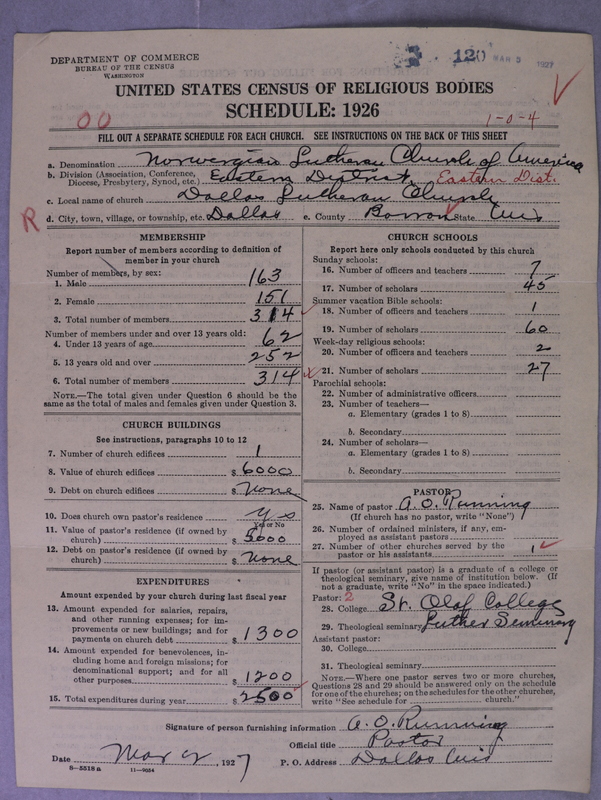 DEPARTMENT OF COMMERCE
BUREAU OF THE CENSUS
WASHINGTON
120 MAR 9 1927
UNITED STATES CENSUS OF RELIGIOUS BODIES
SCHEDULE: 1926
00
1-0-4
FILL OUT A SEPARATE SCHEDULE FOR EACH CHURCH. SEE INSTRUCTIONS ON THE BACK OF THIS SHEET
a. Denomination Norwegian Lutheran Church of America
b. Division (Association, Conference, Diocese, Presbytery, Synod, etc.) Eastern District Eastern Dist.
c. Local name of church Dallas Lutheran Church
R d. City, town, village, or township, etc. Dallas e. County Barron State Wis
MEMBERSHIP
Report number of members according to definition of
member in your church
Number of members, by sex:
1. Male 163
2. Female 151
3. Total number of members 314
Number of members under and over 13 years old:
4. Under 13 years of age 62
5. 13 years old and over 252
6. Total number of members 314
NOTE.—The total given under Question 6 should be the
same as the total of males and females given under Question 3.
CHURCH BUILDINGS
See instructions, paragraphs 10 to 12
7. Number of church edifices 1
8. Value of church edifices $ 6000
9. Debt on church edifices $ None
10. Does church own pastor's residence yes
Yes or No
11. Value of pastor's residence (if owned by
church) $ 5000
12. Debt on pastor's residence (if owned by
church) $ None
EXPENDITURES
Amount expended by your church during last fiscal year
13. Amount expended for salaries, repairs,
and other running expenses; for im-
provements or new buildings; and for
payments on church debt $ 1300
14. Amount expended for benevolences, in-
cluding home and foreign missions; for
denominational support; and for all
other purposes $ 1200
15. Total expenditures during year $ 2500
CHURCH SCHOOLS
Report here only schools conducted by this church
Sunday schools:
16. Number of officers and teachers 7
17. Number of scholars 45
Summer vacation Bible schools:
18. Number of officers and teachers 1
19. Number of scholars 60
Week-day religious schools:
20. Number of officers and teachers 2
21. Number of scholars 27
Parochial schools:
22. Number of administrative officers
23. Number of teachers—
a. Elementary (grades 1 to 8)
b. Secondary
24. Number of scholars—
a. Elementary (grades 1 to 8)
b. Secondary
PASTOR
25. Name of pastor A. O. Running
(If church has no pastor, write "None")
26. Number of ordained ministers, if any, em-
ployed as assistant pastors
27. Number of other churches served by the
pastor or his assistants 1
If pastor (or assistant pastor) is a graduate of a college or
theological seminary, give name of institution below. (If
not a graduate, write "No" in the space indicated.)
Pastor: 2
28. College St. Olaf College
29. Theological seminary Luther Seminary
Assistant pastor:
30. College
31. Theological seminary
NOTE.—Where one pastor serves two or more churches,
Questions 28 and 29 should be answered only on the schedule
for one of the churches; on the schedules for the other churches,
write "See schedule for church."
Signature of person furnishing information A. O. Running
Official title Pastor
Date Mar 2, 1927 P. O. Address Dallas Wis
8—5518 a 11—9034